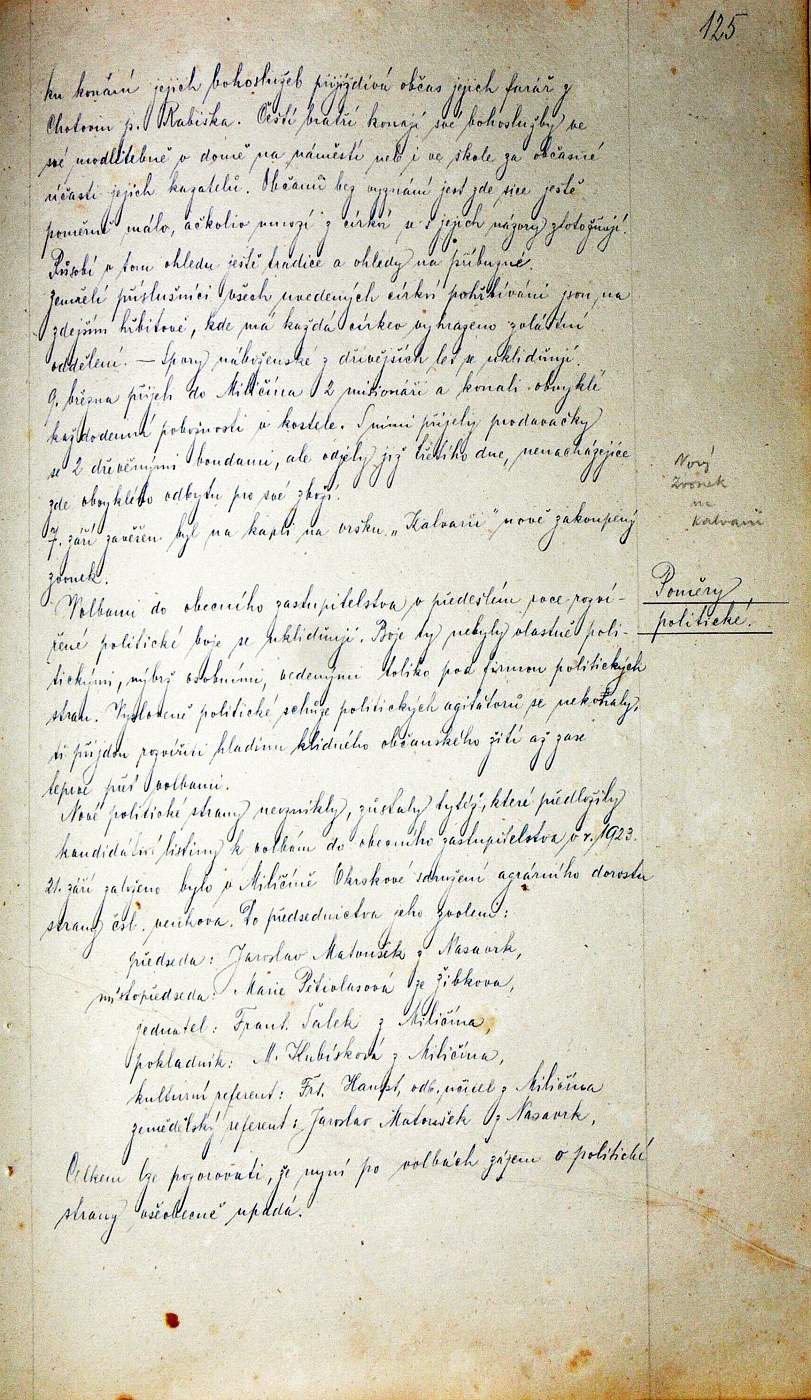 125
ku konání jejich bohoslužeb přijíždívá občas jejich farář z
Chotovin p. Rabiška. Čeští bratří konají své bohoslužby ve
své modlitebně v domě na náměstí neb i ve škole za občasné
účasti jejich kazatelů. Občanů bez vyznání jest zde sice ještě
poměrně málo, ačkoliv mnozí z církví se s jejich názory ztotožňují.
Působí v tom ohledu ještě tradice a ohledy na příbuzné.
Zemřelí příslušníci všech uvedených církví pohřbíváni jsou na
zdejším hřbitově, kde má každá církev vyhrazeno zvláštní
oddělení. — Spory náboženské z dřívějších let se uklidňují.
9. března přijeli do Miličína 2 misionáři a konali obvyklé
každodenní pobožnosti v kostele. S nimi přijely prodavačky
se 2 dřevěnými boudami, ale odjely již třetího dne, nenacházejíce
zde obvyklého odbytu pro své zboží.
7. září zavěšen byl na kapli na vršku „Kalvarii" nově zakoupený
zvonek.
Nový
Zvonek
na
Kalvarii
Poměry
politické.
Volbami do obecního zastupitelstva v předešlém roce rozví-
řené politické boje se uklidňují. Boje ty nebyly vlastně poli-
tickými, nýbrž osobními, vedenými toliko pod firmou politických
stran. Vysloveně politické schůze politických agitátorů se nekonaly,
ti přijdou rozvířiti hladinu klidného občanského žití až zase
teprve před volbami.
Nové politické strany nevznikly, zůstaly tytéž, které předložily
kandidátní listiny k volbám do obecního zastupitelstva v r. 1923.
21. září založeno bylo v Miličíně Okrskové sdružení agrárního dorostu
strany čsl. venkova. Do předsednictva jeho zvoleni:
předseda: Jaroslav Matoušek z Nasavrk,
místopředseda: Marie Pětivlasová ze Žibkova,
jednatel: Frant. Šálek z Miličína,
pokladník: M. Kubísková z Miličína,
kulturní referent: Frt. odb. učitel z Miličína
zemědělský referent: Jaroslav Matoušek z Nasavrk,
Celkem lze pozorovati, že nyní po volbách zájem o politické
strany všeobecně upadá.